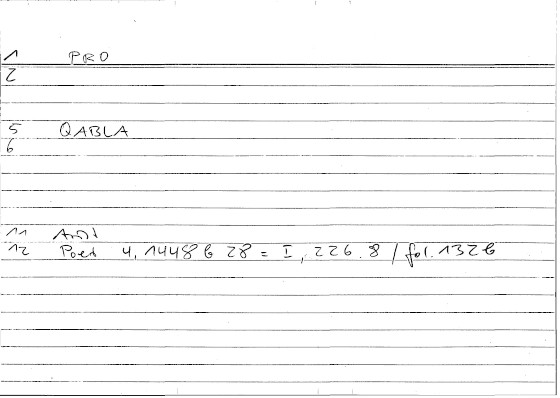 1 PRO
2
5 QABLA
6
11 Arist
12 Poet 4, 1448 b 28 = I, 226.8 / fol. 132 b